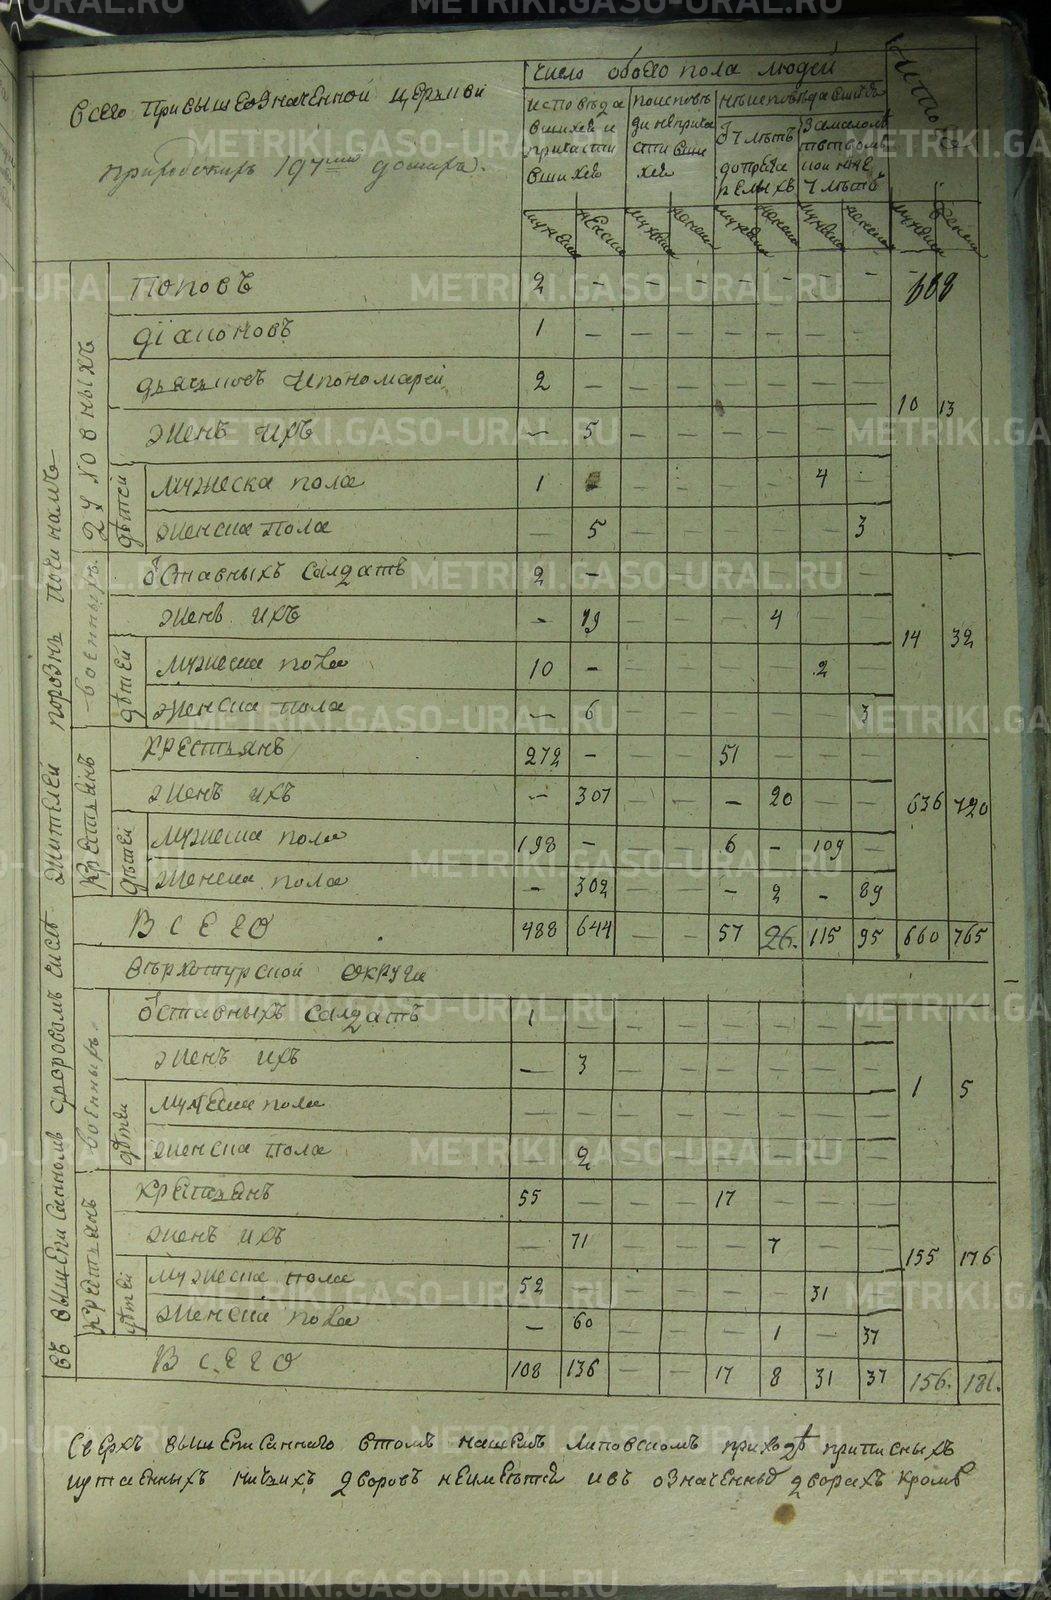 Число обоего пола людей
Итого
Всего При вышеозначенной церкви
приходскихъ 197 дворахъ.
исповѣдавшихся и причастившихся
по исповѣди не причастившихся
не исповѣдавшихся
ѿ 7 лѣтъ до престарелыхъ
За малолѣтствомъ нониже 7 лѣтъ
мужеска женска мужеска женска мужеска женска мужеска женска мужеска женска
въ вышеписанномъ дворовомъ числѣ жителей порознь по чинамъ
духовныхъ
Поповъ 2 – – – – – – –
діаконовъ 1 – – – – – – –
дьячковъ и пономарей 2 – – – – – – –
10 13
женъ ихъ – 5 – – – – – –
дѣтей
мужеска пола 1 – – – – 4 –
женска пола – 5 – – – – 3
военныхъ
ѿставныхъ солдатъ 2 –
женъ ихъ – 19 – – – 4
14 32
дѣтей
мужеска пола 10 – 2
женска пола – 6 3
Крестьянъ
крестьянъ 272 – – – 51 – – –
женъ ихъ – 307 – – – 20 – –
636 720
дѣтей
мужеска пола 198 – – – 6 – 109 –
женска пола – 302 – – – 2 – 89
ВСЕГО 488 644 – – 57 26. 115 95 660 765
Верхотурской округи
военныхъ
ѿставныхъ солдатъ 1 – – – – – – –
женъ ихъ – 3 – – – – – –
1 5
дѣтей
мужеска пола – – – – – – – –
женска пола – 2 – – – – – –
Крестьянъ
крестьянъ 55 17
женъ ихъ – 71 – – – 7 – –
155 176
дѣтей
мужеска пола 52 – – – – – 31 –
женска пола – 60 – – – 1 – 37
ВСЕГО 108 136 – – 17 8 31 37 156. 181.
Сверхъ вышеписаннаго втомъ нашемъ Липовскомъ приходѣ приписныхъ
иутаенныхъ ничьихъ дворовъ неимеѣтся ивъ означенныхъ дворахъ кромѣ
METRIKI.GASO-URAL.RU